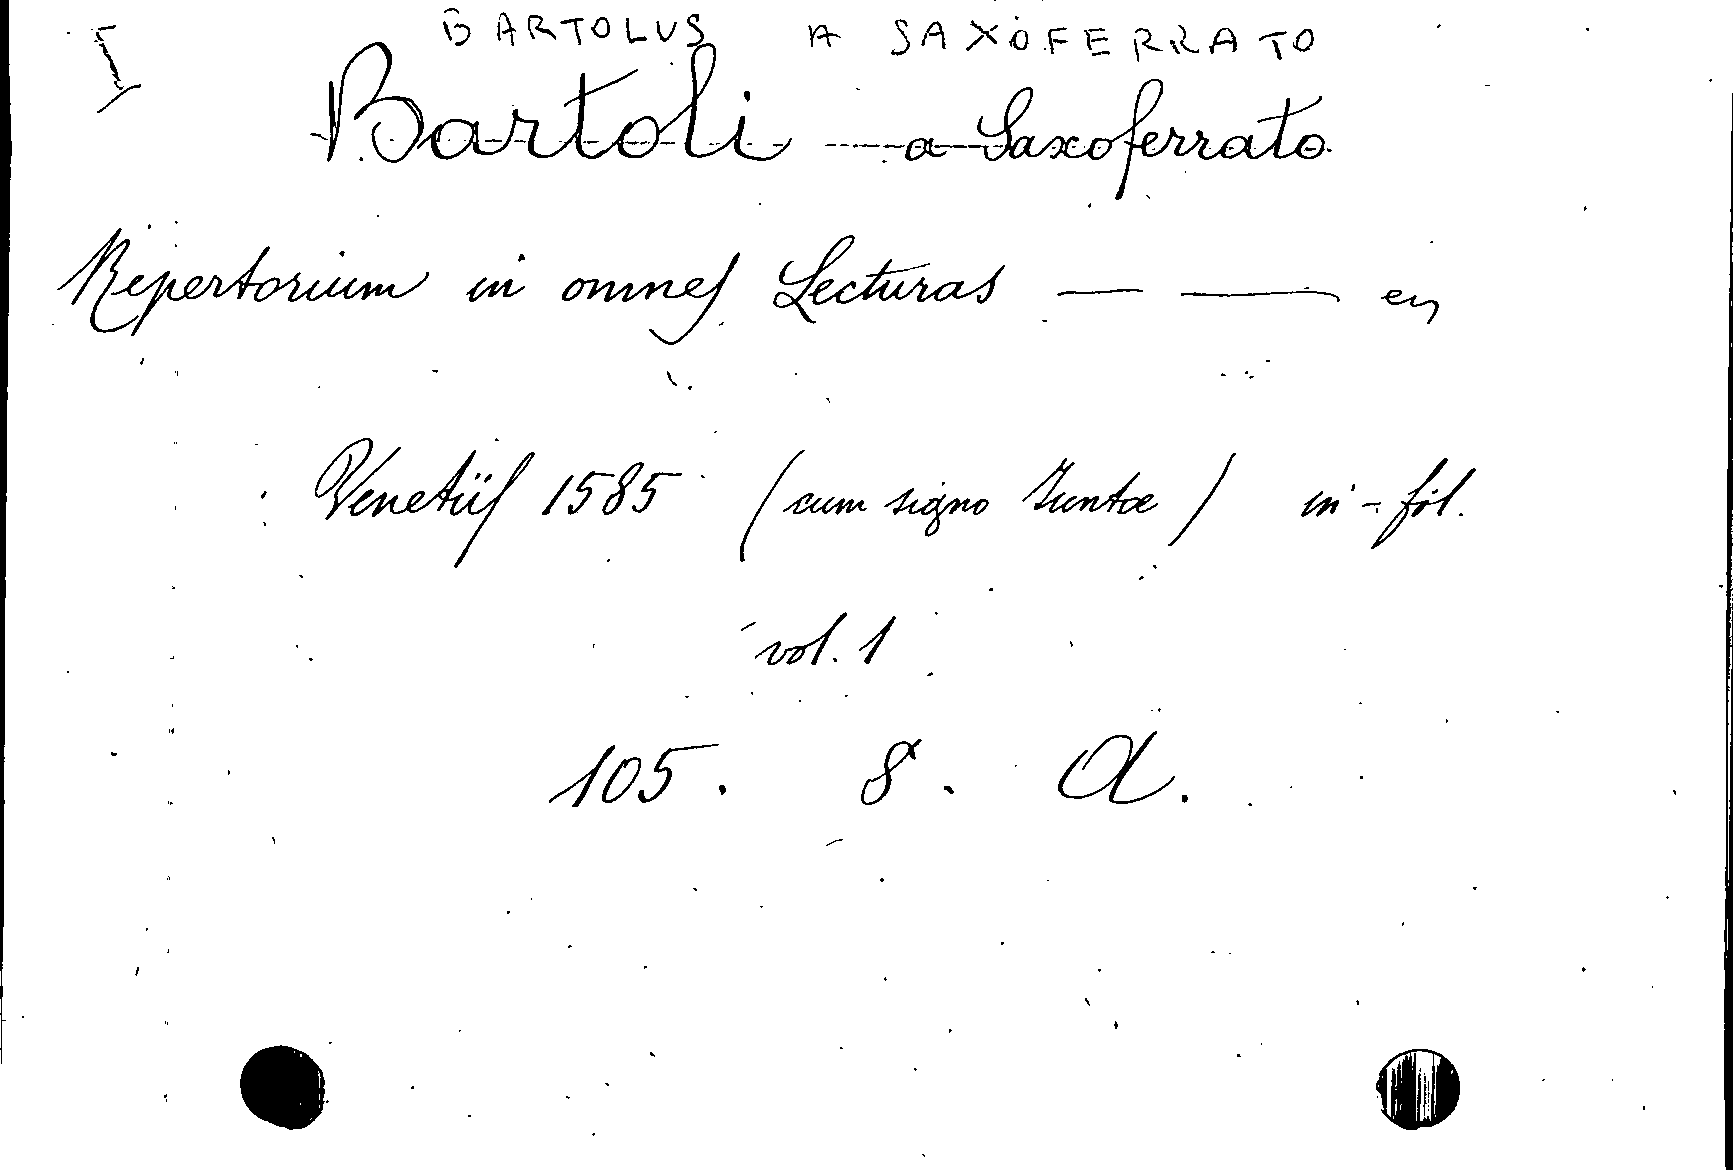 I
BARTOLUS A SAXOFERRATO
Bartoli a Saxoferrato
Repertorium in omnes Lecturas — —
Venetiis 1585 (cum signo Juntæ) in-fol.
vol. 1
105. 8. A.